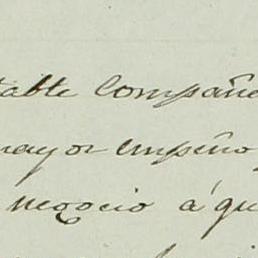 table compañe
mayor empeño
negocio á qu